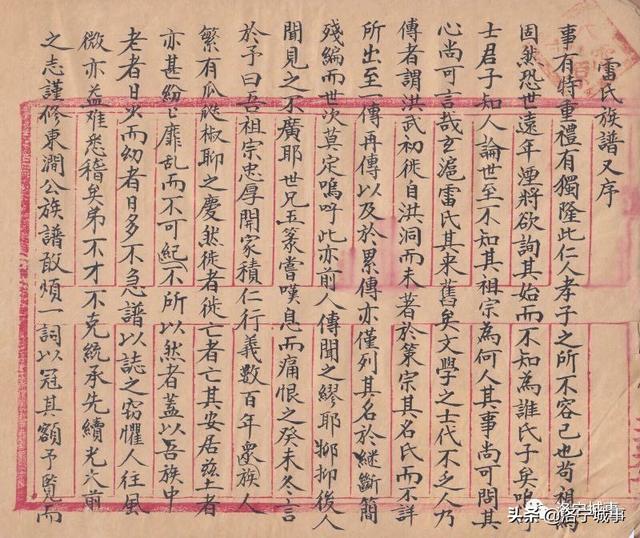 雷氏族譜又序
事有特重禮有獨隆此仁人孝子之所不容已也苟視為
固然恐世遠年湮將欲詢其始而不知為誰氏子矣嗚呼
士君子知人論世至不知其祖宗為何人其事尚可問其
心尚可言哉玄滬雷氏其来舊矣文學之士代不乏人乃
傳者謂洪武初徙自洪洞而未著於策宗其名氏而不詳
所出至一傳再傳以及於累傳亦僅列其名於継斷簡
殘編而世次莫定嗚呼此亦前人傳聞之繆耶抑後人
聞見之不廣耶世兄五篆嘗嘆息而痛恨之癸未冬言
於予曰吾祖宗忠厚開家積仁行義數百年衆族人
繁有瓜瓞椒聊之慶然徙者徙亡者亡其安居兹土者
亦甚紛〻靡乱而不可紀不所以然者蓋以吾族中
老者日火而幼者日多不急譜以誌之窃懼人往風
微亦益难悉稽矣弟不才不克統承先續光大前
之志謹修東澗公族譜敢煩一詞以冠其額予覽而
头条@洛宁城事
洛宁城事